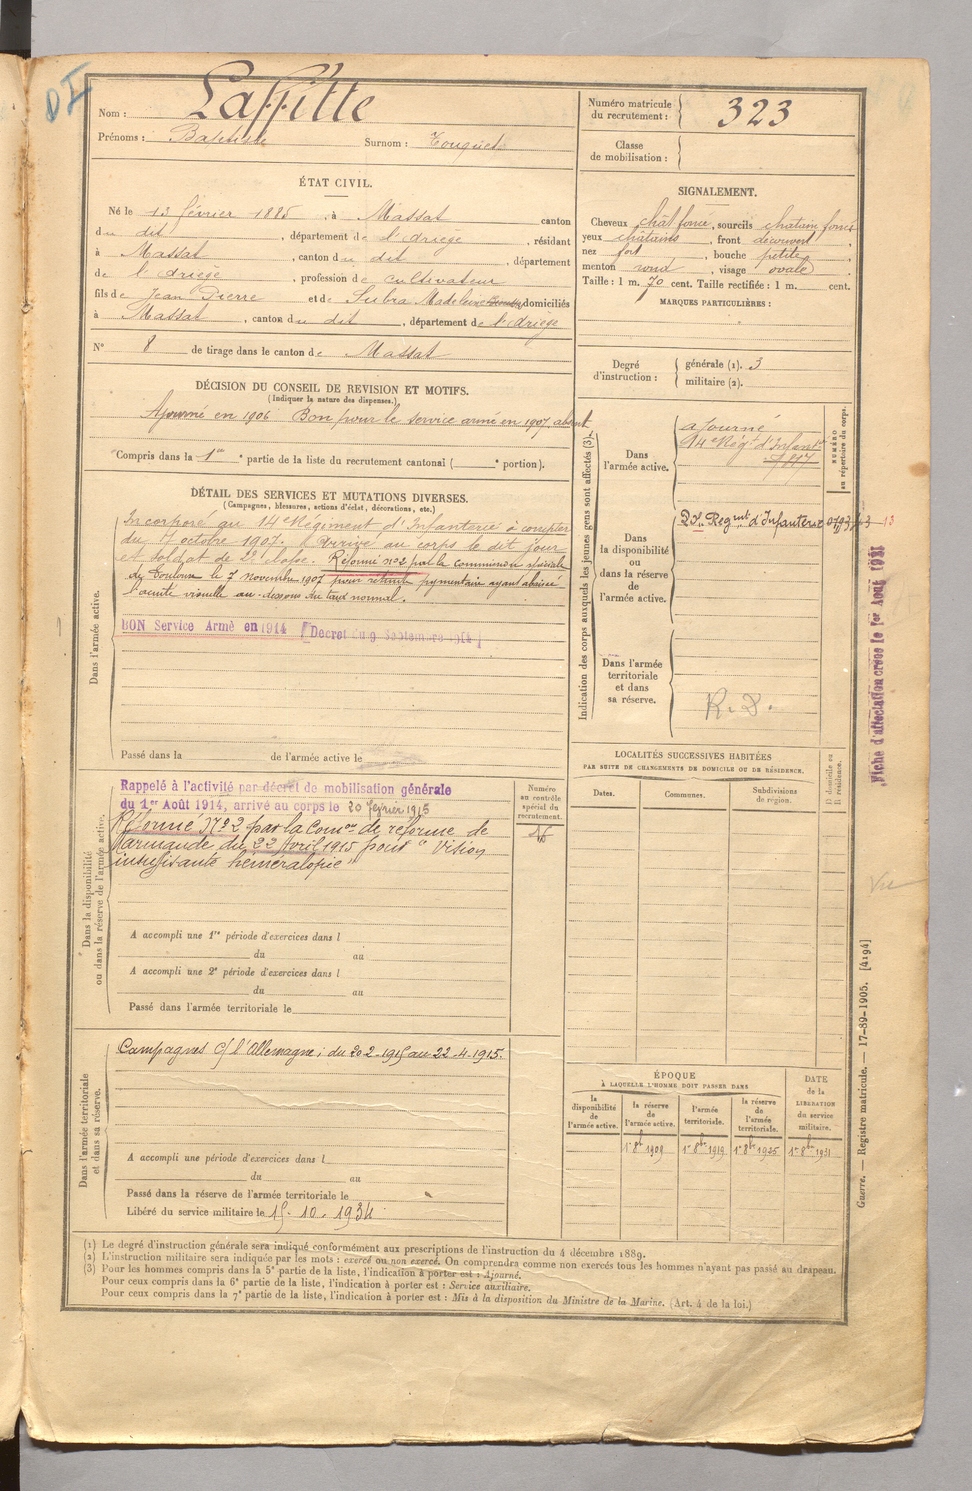 Nom : Laffitte
Prénoms : Baptiste Surnom : Touguets
ÉTAT CIVIL.
Né le 13 février 1885, à Massat canton
du dit, département de l'Ariège, résidant
à Massat, canton du dit, département
de l'Ariège, profession de cultivateur
fils de Jean Pierre et de Subra Madeleine domiciliés
à Massat, canton du dit, département de l'Ariège
N° 8 de tirage dans le canton de Massat
DÉCISION DU CONSEIL DE REVISION ET MOTIFS.
(Indiquer la nature des dispenses.)
Ajourné en 1906 Bon pour le service armé en 1907, absent
Compris dans la 1ère partie de la liste du recrutement cantonal ( e portion).
DÉTAIL DES SERVICES ET MUTATIONS DIVERSES.
(Campagnes, blessures, actions d'éclat, décorations, etc.)
Dans l'armée active.
Incorporé au 14e Régiment d'Infanterie à compter
du 7 octobre 1907. Arrivé au corps le dit jour
et soldat de 2e classe. Réformé n°2 par la commission spéciale
de Toulouse le 7 novembre 1907 pour rétinite pigmentaire ayant abaissé
l'acuité visuelle au-dessous du taux normal.
BON Service Armé en 1914 [Décret du 9 Septembre 1914]
Passé dans la de l'armée active le
Dans la disponibilité
ou dans la réserve de l'armée active.
Rappelé à l'activité par décret de mobilisation générale
du 1er Août 1914, arrivé au corps le 20 février 1915
Réformé N°2 par la Comon de réforme de
Marmande du 22 Avril 1915 pour "Vision
insuffisante héméralopie"
A accompli une 1re période d'exercices dans l
du au
A accompli une 2e période d'exercices dans l
du au
Passé dans l'armée territoriale le
Numéro
au contrôle
spécial du
recrutement.
Dans l'armée territoriale
et dans sa réserve.
Campagnes c/ l'Allemagne : du 20-2-1915 au 22-4-1915.
A accompli une période d'exercices dans l
du au
Passé dans la réserve de l'armée territoriale le
Libéré du service militaire le 15-10-1934
Numéro matricule
du recrutement : 323
Classe
de mobilisation :
SIGNALEMENT.
Cheveux chât foncé, sourcils chatain foncé
yeux châtains, front découvert,
nez fort, bouche petite,
menton rond, visage ovale
Taille : 1 m. 70 cent. Taille rectifiée : 1 m. cent.
MARQUES PARTICULIÈRES :
Degré
d'instruction :
générale (1). 3
militaire (2).
Indication des corps auxquels les jeunes gens sont affectés (3).
NUMÉRO
au répertoire du corps.
Dans
l'armée active.
ajourné
14e Régt d'Infantie
Dans
la disponibilité
ou
dans la réserve
de
l'armée active.
Regmt d'Infanterie
Dans l'armée
territoriale
et dans
sa réserve.
R. D.
Fiche d'affectation créée le 1er Août 1921
LOCALITÉS SUCCESSIVES HABITÉES
PAR SUITE DE CHANGEMENTS DE DOMICILE OU DE RÉSIDENCE.
Dates. Communes. Subdivisions
de région.
D domicile ou
R résidence.
Vu
ÉPOQUE
À LAQUELLE L'HOMME DOIT PASSER DANS
la
disponibilité
de
l'armée active.
la réserve
de
l'armée active.
l'armée
territoriale.
la réserve
de
l'armée
territoriale.
DATE
de la
LIBÉRATION
du service
militaire.
1er 8bre 1909 1er 8bre 1919 1er 8bre 1925 1er 8bre 1931
Guerre. — Registre matricule. — 17-89-1905. [4194]
(1) Le degré d'instruction générale sera indiqué conformément aux prescriptions de l'instruction du 4 décembre 1889.
(2) L'instruction militaire sera indiquée par les mots : exercé ou non exercé. On comprendra comme non exercés tous les hommes n'ayant pas passé au drapeau.
(3) Pour les hommes compris dans la 5e partie de la liste, l'indication à porter est : Ajourné.
Pour ceux compris dans la 6e partie de la liste, l'indication à porter est : Service auxiliaire.
Pour ceux compris dans la 7e partie de la liste, l'indication à porter est : Mis à la disposition du Ministre de la Marine. (Art. 4 de la loi.)